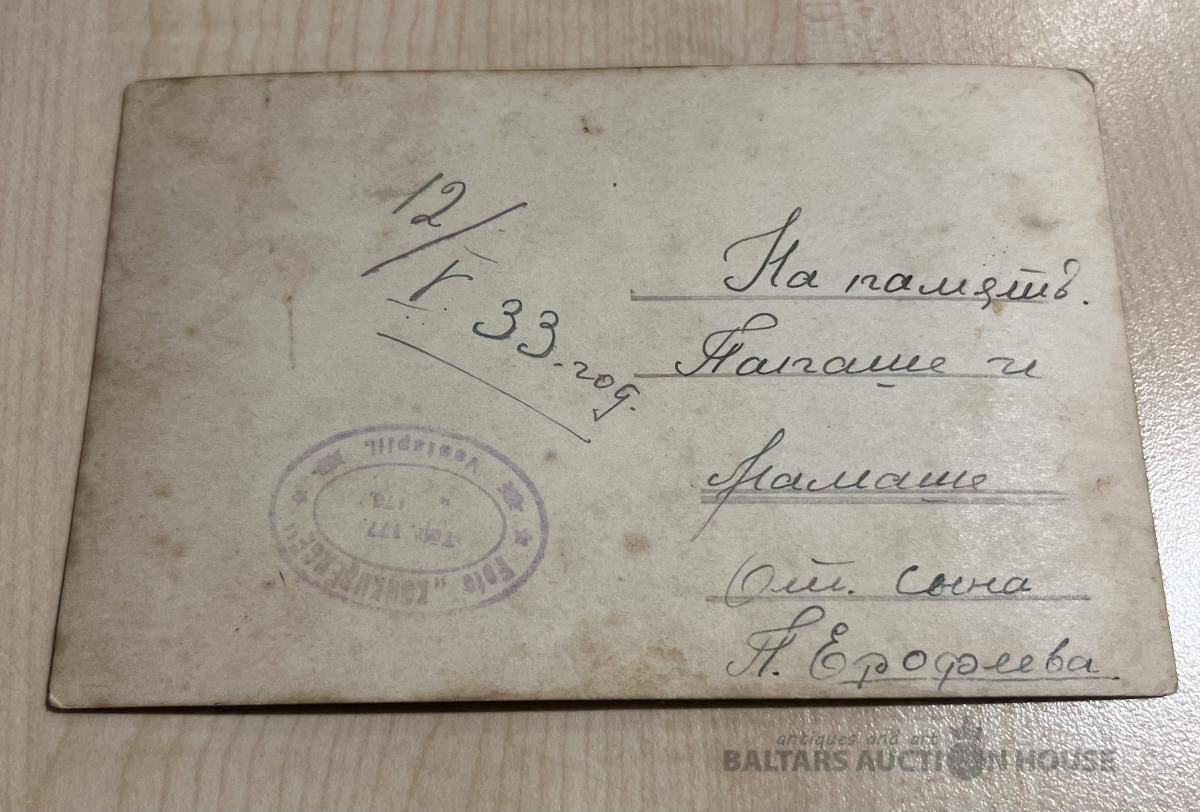 12/V 33-год.
На память.
Папаше и
Мамаше
От. сына
П. Ерофеева.
Foto „KONKURENCE"
Tāl. 177.
" 176.
Ventspilī.
antiques and art
BALTARS AUCTION HOUSE